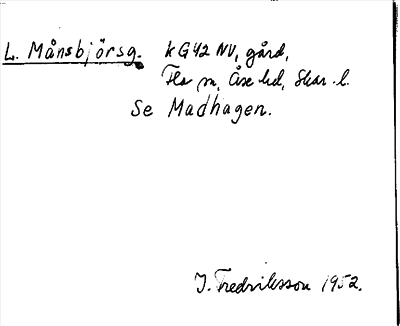 L. Månsbjörsg. k G42 NV, gård,
Flo sn, Åse hd, Skar. l.
Se Madhagen.
I. Fredriksson 1952.